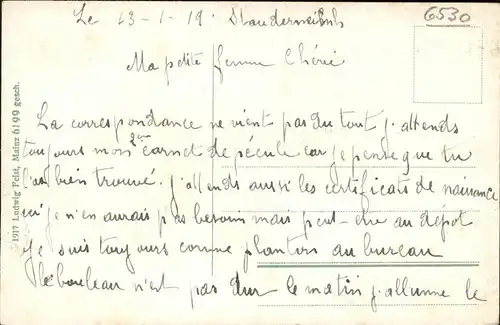 Le 13-1-19. Staudernheim
6530
Ma petite femme Chérie
La correspondance ne vient pas du tout j'attends
toujours mon 2em carnet de pécule car je pense que tu
l'as bien trouvé. j'attends aussi les certificats de naissance
ici je n'en aurais pas besoin mais peut-être au dépôt
je suis toujours comme planton au bureau
le bouleau n'est pas dur le matin j'allume le
1917 Ludwig Feist, Mainz 6199 gesch.